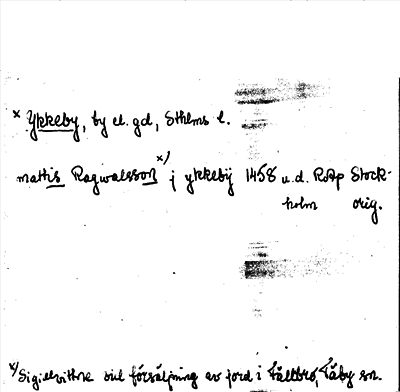 x Ykkeby, by el. gd, Sthlms l.
x)
mattis Ragwalsson j ykkeby 1458 u.d. RAp Stock-
holm orig.
x) Sigillvittne vid försäljning av jord i Fällbro, Täby sn.